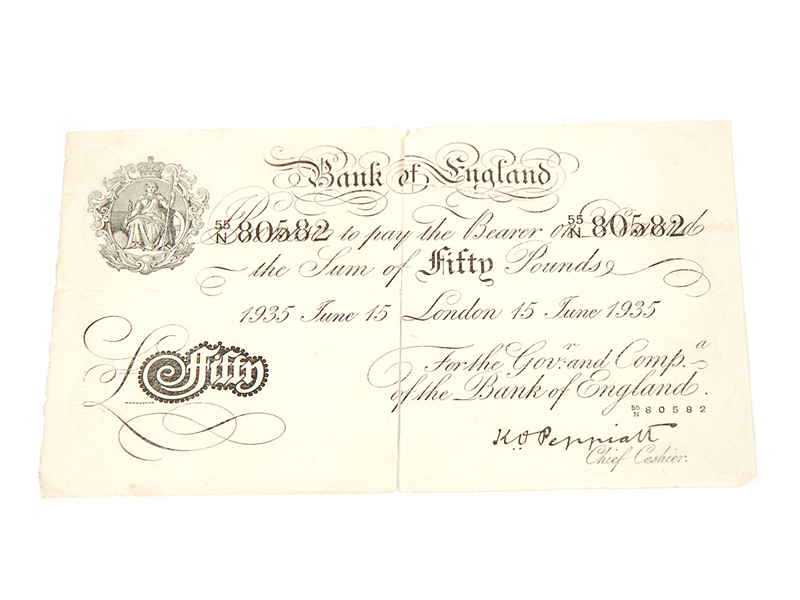 Bank of England
55/N 80582 55/N 80582
to pay the Bearer on
the Sum of Fifty Pounds
1935 June 15 London 15 June 1935
For the Govr. and Compa.
of the Bank of England.
£ Fifty
55/N 80582
K O Peppiatt
Chief Cashier.